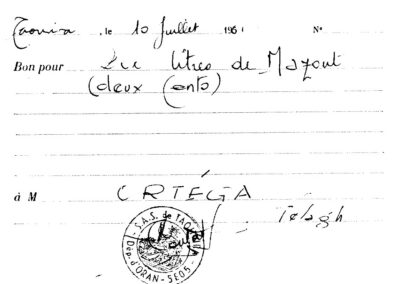 Taouira, le 10 Juillet 1961 N°
Bon pour 200 litres de Mazout
(deux Cents)
à M ORTÉGA
Telagh
S.A.S. de TAOUIRA
Dép. d'ORAN - SE05